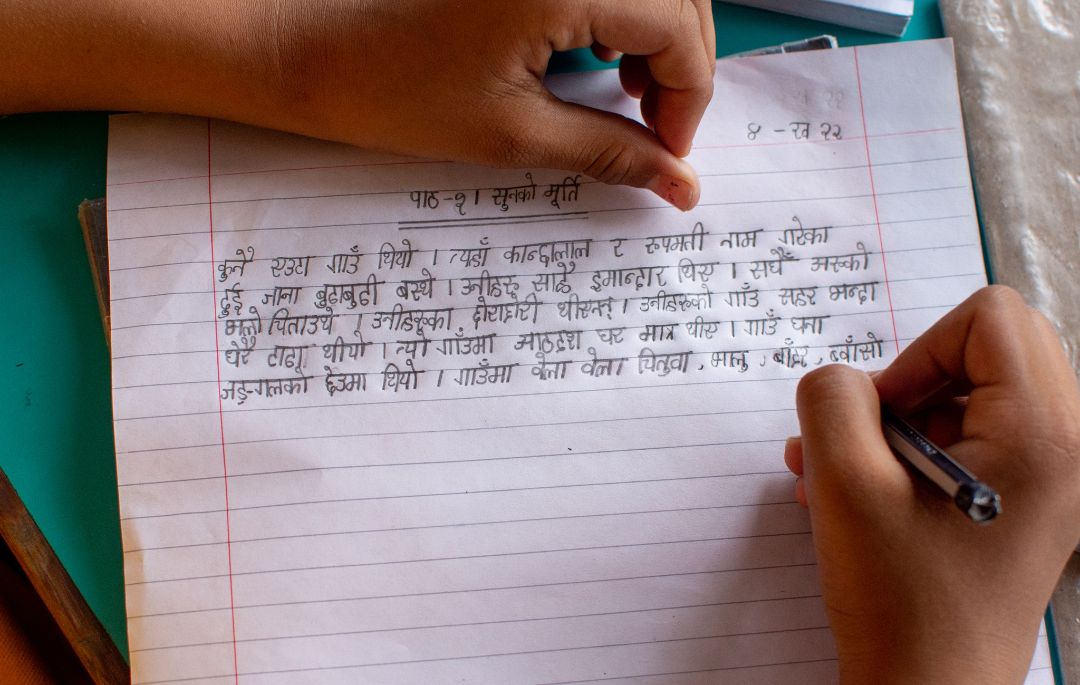 ४ - ख २२
पाठ-१। सुनको मूर्ति
कुनै एउटा गाउँ थियो । त्यहाँ कान्छालाल र रुपमती नाम गरेका
दुई जाना बुढाबुढी बस्थे । उनीहरू साह्रै इमान्दार थिए । सधैँ अरुको
भलो चिताउथे । उनीहरूका छोराछोरी थीएनन् । उनीहरूको गाउँ सहर भन्दा
धेरै टाढा थीयो । त्यो गाउँमा आठदश घर मात्र थीए । गाउँ घना
जङ्गलका छेउमा थियो । गाउँमा वेला वेला चितुवा, भालु, बाँदर, ब्वाँसो